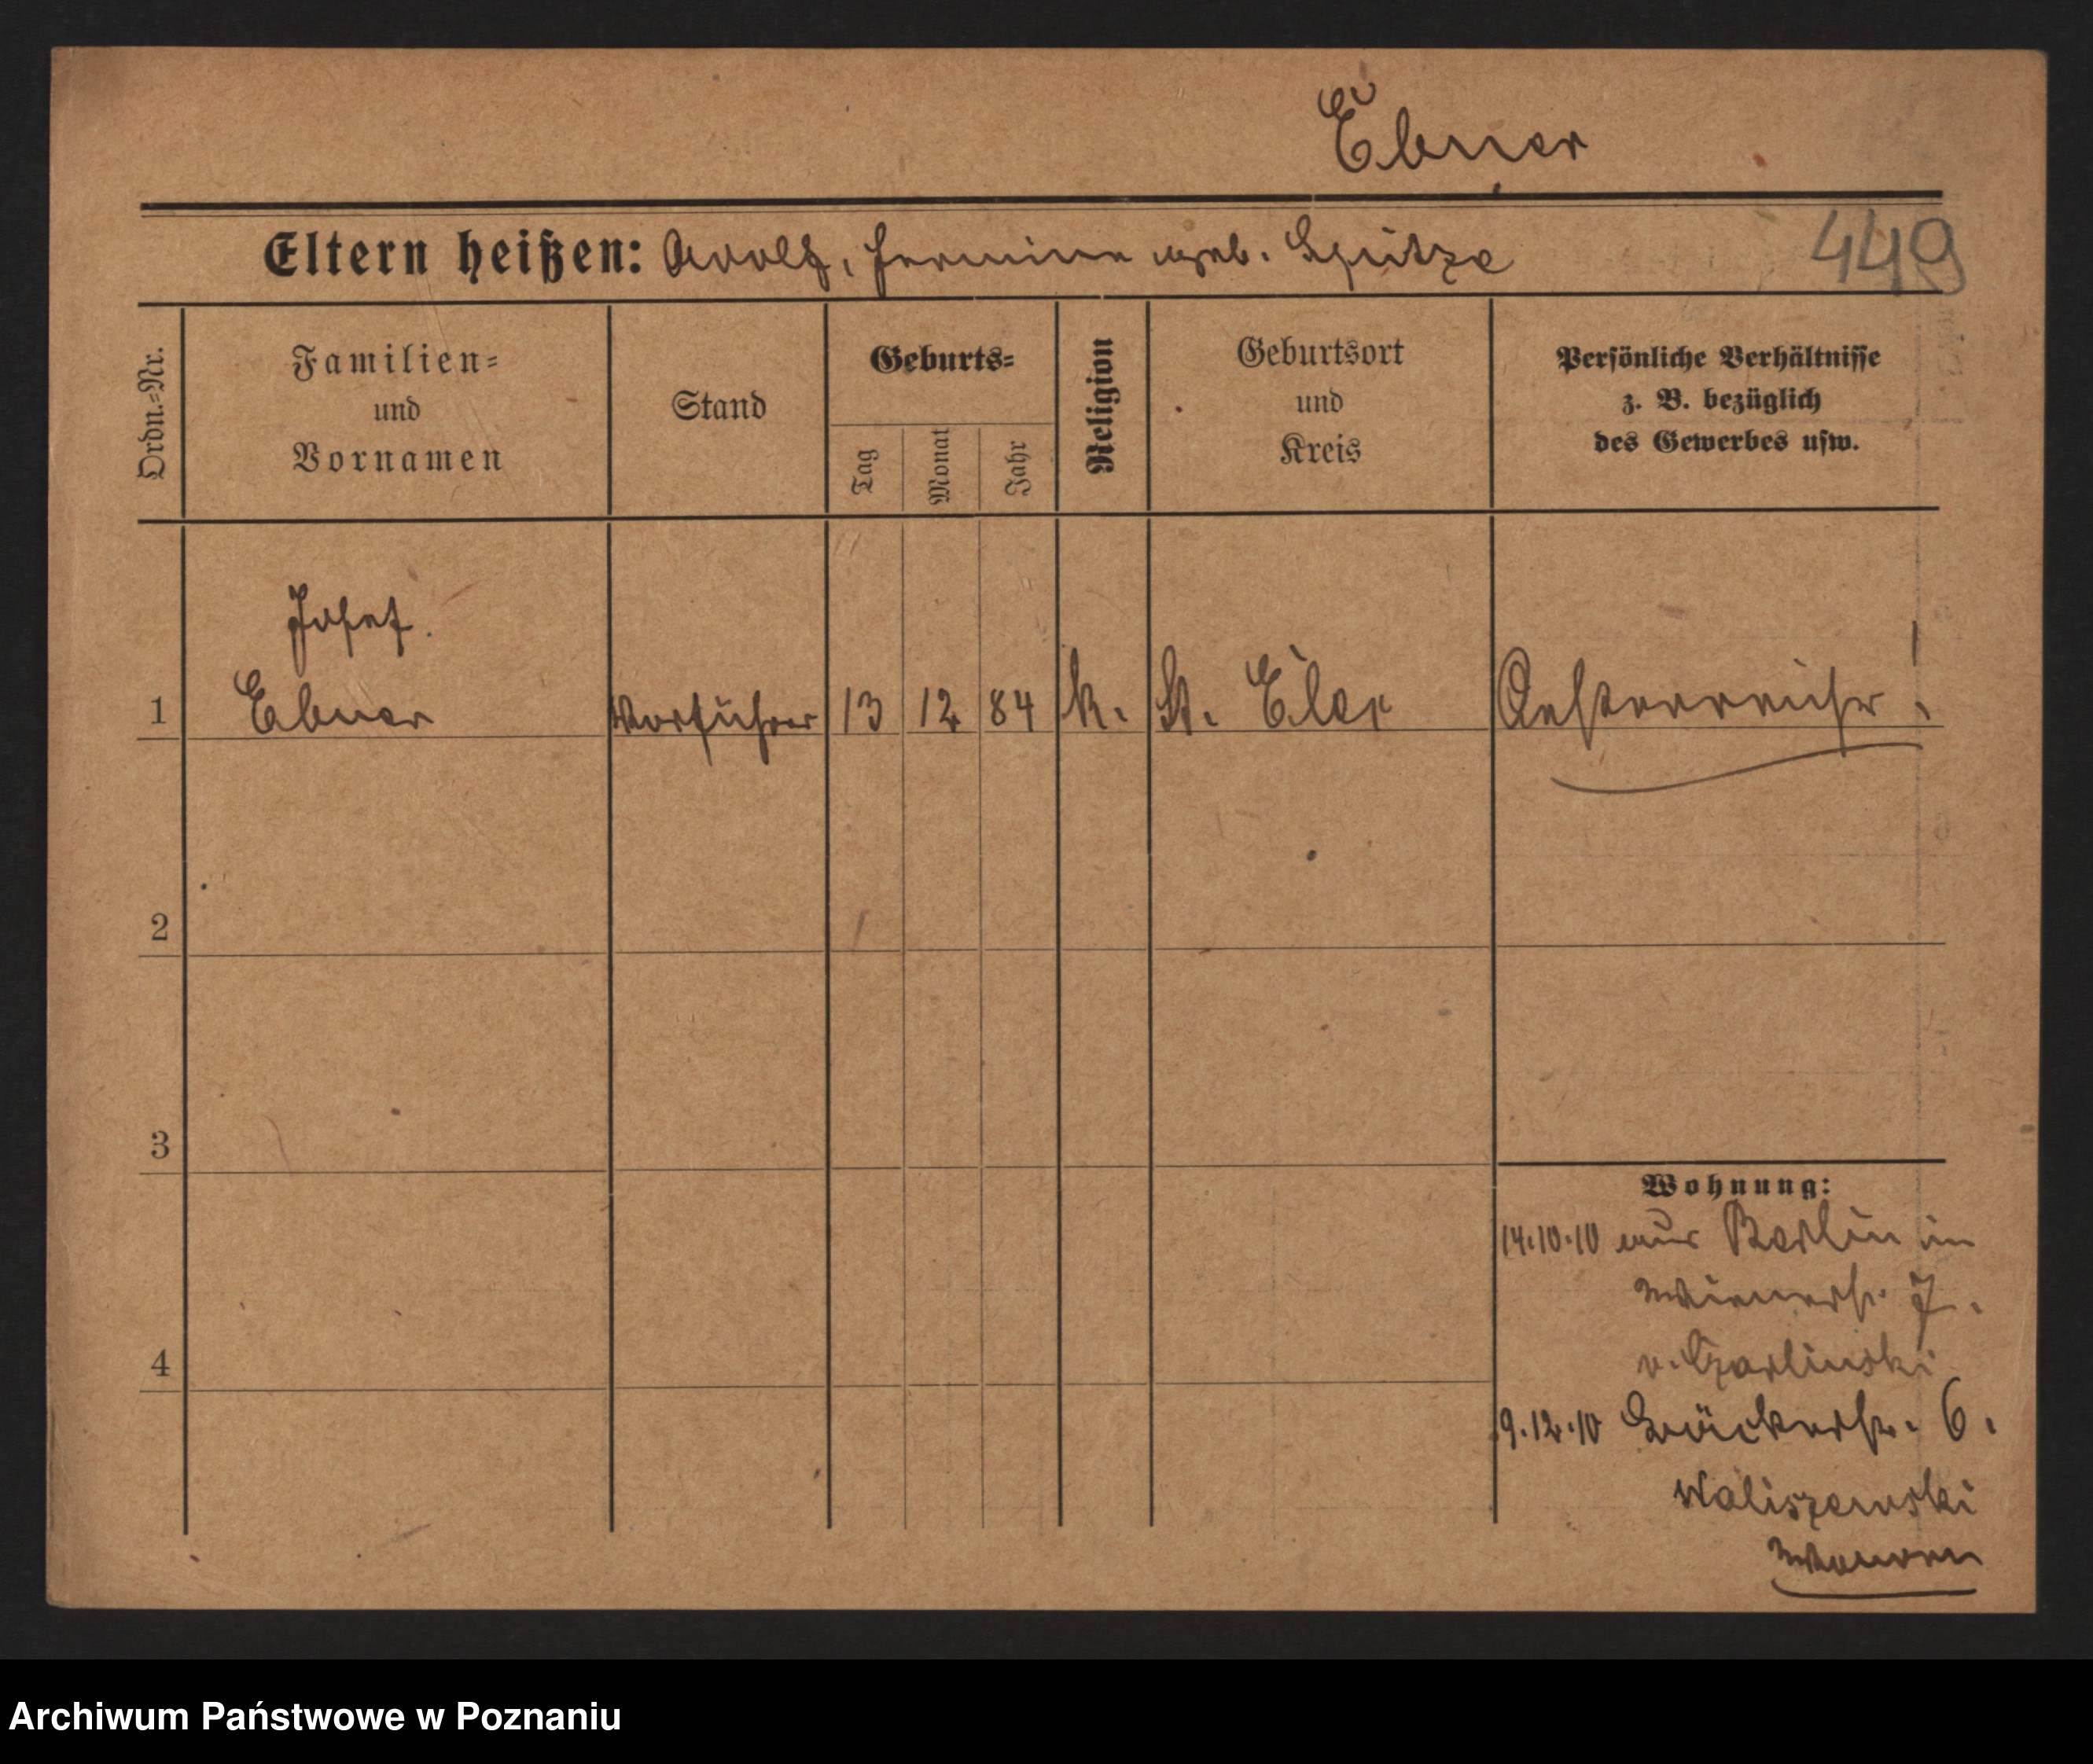 Ebner
Eltern heißen: Adolf, Hermine geb. Spitze
449
Ordn.-Nr.
Familien-
und
Vornamen
Stand
Geburts-
Tag
Monat
Jahr
Religion
Geburtsort
und
Kreis
Persönliche Verhältnisse
z. B. bezüglich
des Gewerbes usw.
Josef
1 Ebner Vorführer 13 12 84 k. St. Oesterreicher!
2
3
4
Wohnung:
14.10.10 aus Berlin in
Wienerstr. 7.
v. Czarlinski
9.12.10 Bäckerstr. 6.
Waliszewski